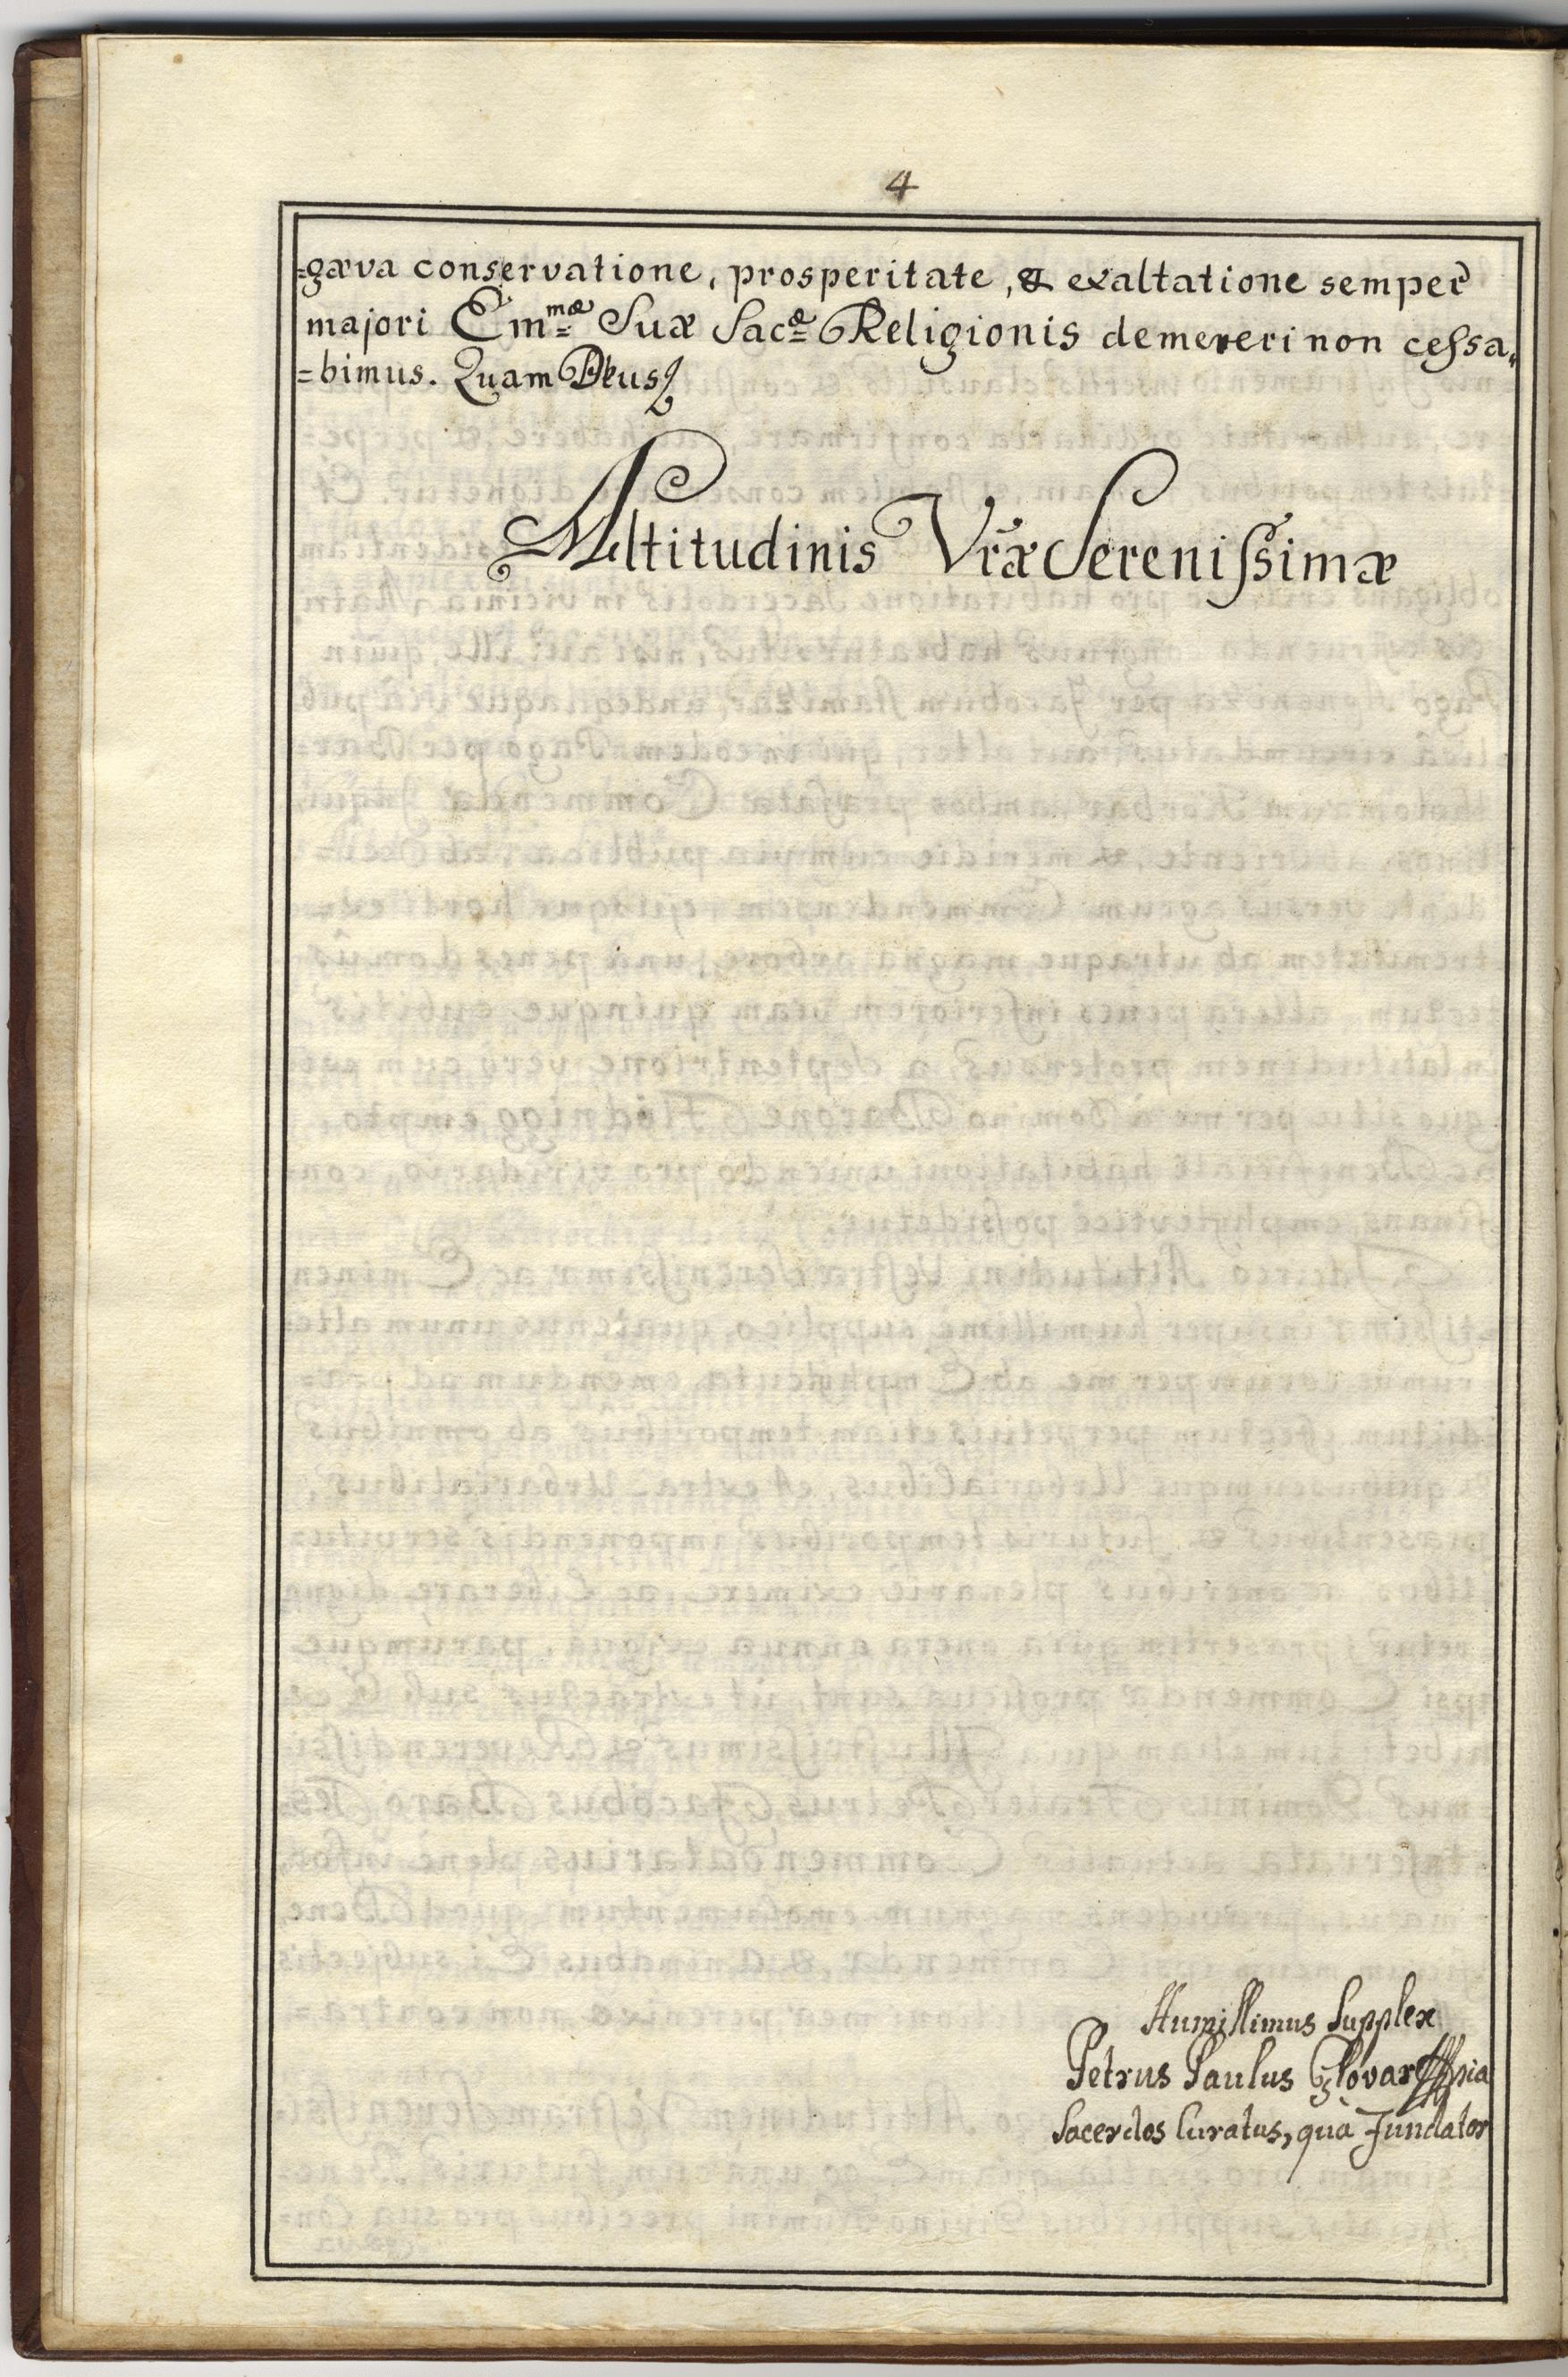 4
=gæva conservatione, prosperitate, & exaltatione semper
majori Em̅mæ Suæ Sacæ Religionis demereri non ceſsa,
=bimus. Quam Deus
Altitudinis Vr̃æ Sereniſsimæ
Humillimus Supplex
Petrus Paulus Glovar
Sacerdos Curatus, quà Fundator